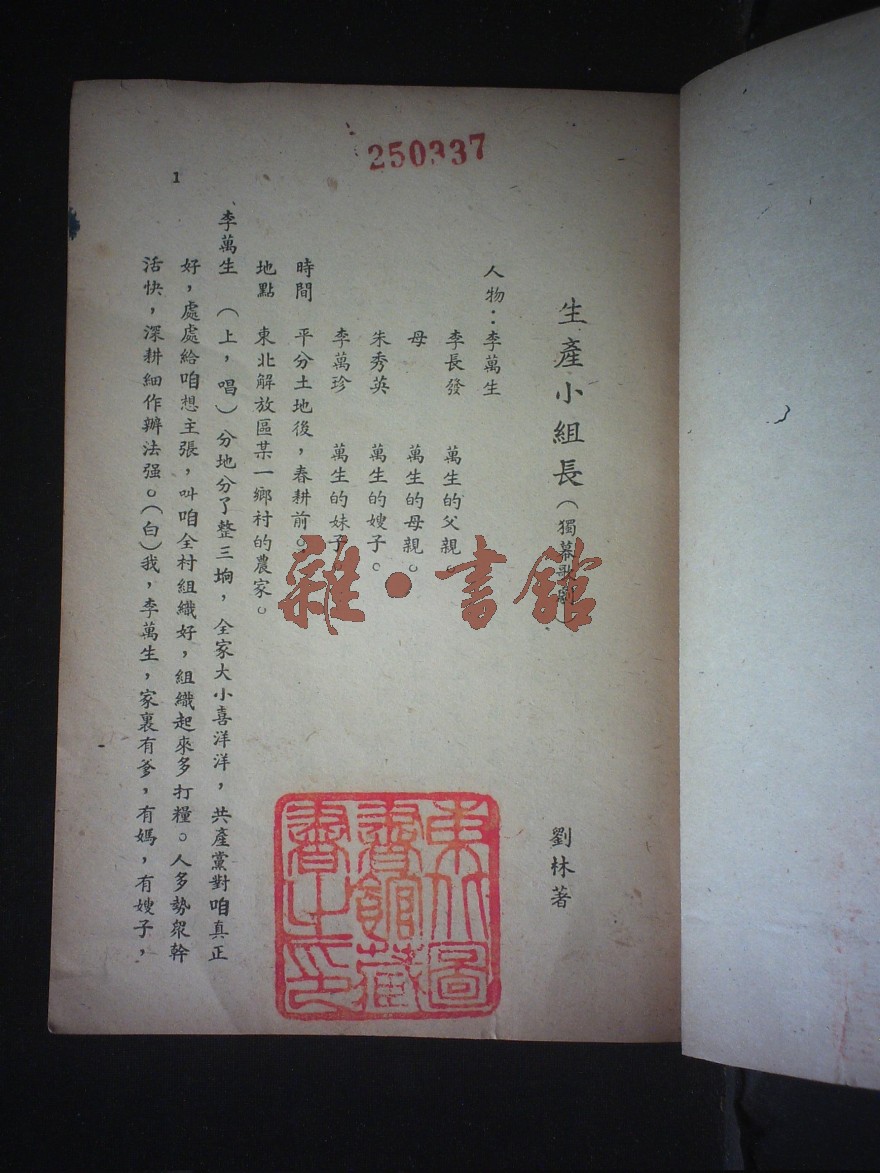 250337
1
生產小組長(獨幕歌劇)
劉林著
人物：李萬生
李長發 萬生的父親。
母 萬生的母親。
朱秀英 萬生的嫂子。
李萬珍 萬生的妹子。
時間 平分土地後，春耕前。
地點 東北解放區某一鄉村的農家。
李萬生 (上，唱)分地分了整三坰，全家大小喜洋洋，共產黨對咱真正
好，處處給咱想主張，叫咱全村組織好，組織起來多打糧。人多勢眾幹
活快，深耕細作辦法强。(白)我，李萬生，家裏有爹，有媽，有嫂子，
雜·書館
東北圖
書館藏
書之印